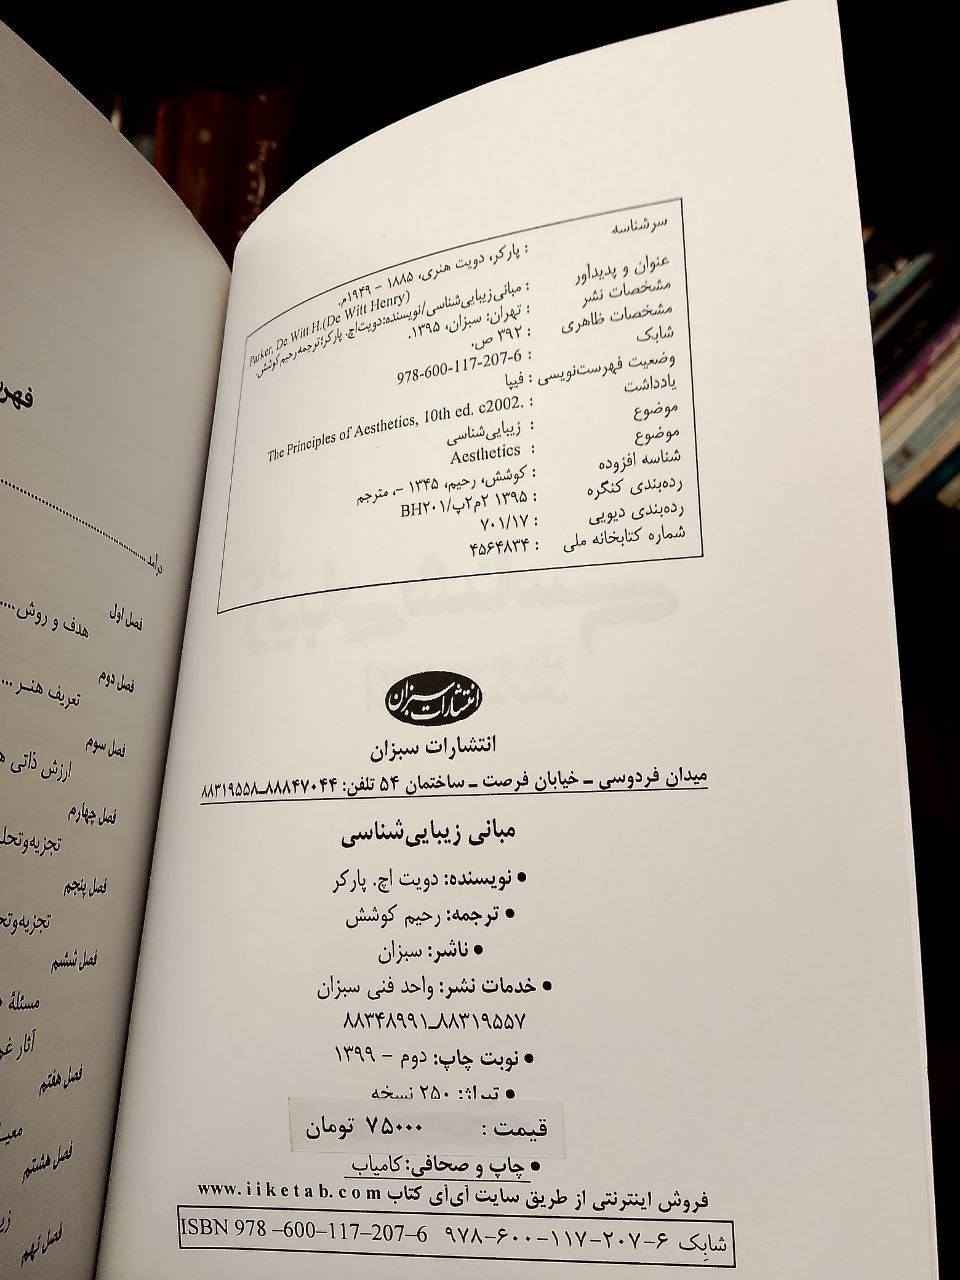 سرشناسه : پارکر، دویت هنری، ۱۸۸۵ - ۱۹۴۹م.
Parker, De Witt H.(De Witt Henry)
عنوان و پدیدآور : مبانی زیبایی‌شناسی/نویسنده:دویت‌اچ. پارکر؛ ترجمه رحیم کوشش.
مشخصات نشر : تهران: سبزان، ۱۳۹۵.
مشخصات ظاهری : ۳۹۲ ص.
شابک : 978-600-117-207-6
وضعیت فهرست‌نویسی : فیپا
یادداشت : The Principles of Aesthetics, 10th ed. c2002.
موضوع : زیبایی‌شناسی
موضوع : Aesthetics
شناسه افزوده : کوشش، رحیم، ۱۳۴۵ -، مترجم
رده‌بندی کنگره : ۱۳۹۵ ۲م۲پ/BH۲۰۱
رده‌بندی دیویی : ۷۰۱/۱۷
شماره کتابخانه ملی : ۴۵۶۴۸۳۴
انتشارات سبزان
انتشارات سبزان
میدان فردوسی ـ خیابان فرصت ـ ساختمان ۵۴ تلفن: ۸۸۸۴۷۰۴۴ـ۸۸۳۱۹۵۵۸
مبانی زیبایی‌شناسی
• نویسنده: دویت اچ. پارکر
• ترجمه: رحیم کوشش
• ناشر: سبزان
• خدمات نشر: واحد فنی سبزان
۸۸۳۱۹۵۵۷ـ۸۸۳۴۸۹۹۱
• نوبت چاپ: دوم - ۱۳۹۹
• تیراژ: ۲۵۰ نسخه
قیمت : ۷۵۰۰۰ تومان
• چاپ و صحافی: کامیاب
فروش اینترنتی از طریق سایت آی‌آی کتاب www.iiketab.com
شابک ۶-۲۰۷-۱۱۷-۶۰۰-۹۷۸ ISBN 978 –600–117–207–6
درآمد
فصل اول
هدف و روش
فصل دوم
تعریف هنر
فصل سوم
ارزش ذاتی
فصل چهارم
فصل پنجم
فصل ششم
مسئلهٔ
آثار
فصل هفتم
فصل هشتم
فصل نهم